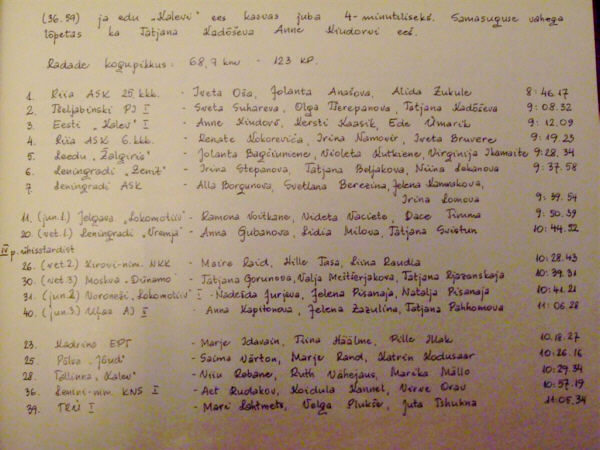 (36.59) ja edu "Kalevi" ees kasvas juba 4-minutiliseks. Samasuguse vahega
lõpetas ka Tatjana Kadõševa Anne Kivdorvi ees.
Radade kogupikkus: 68,7 km - 123 KP.
1. Riia ASK 25. kkk. - Iveta Oša, Jolanta Anašova, Alida Zukule 8:46.17
2. Tšeljabinski PI I - Sveta Suhareva, Olga Tšerepanova, Tatjana Kadõševa 9:08.32
3. Eesti "Kalev" I - Anne Kivdorv, Kersti Kaasik, Ede Umarik 9:12.09
4. Riia ASK 6. kkk. - Renate Kokoreviča, Irina Namovir, Iveta Bruvere 9:19.23
5. Leedu "Žalgiris" - Jolanta Bagčiuniene, Violeta Kutkiene, Virginija Ikamaite 9:28.34
6. Leningradi "Zenit" - Irina Stepanova, Tatjana Beljakova, Niina Lobanova 9:37.58
7. Leningradi ASK - Alla Borgunova, Svetlana Berezina, Jelena Kannakova,
Irina Lomova 9:39.54
11. (jun.1) Jelgava "Lokomotiiv" - Ramona Voitkane, Videta Vaciete, Dace Timma 9:50.39
20. (vet.1) Leningradi "Vremja" - Anna Gubanova, Lidia Milova, Tatjana Svistun 10:44.52
IV p. ühisstardist
26. (vet.2) Kirovi-nim. NKK - Maire Raid, Hille Tasa, Liina Raudla 10:28.43
30. (vet.3) Moskva "Dünamo" - Tatjana Gorunova, Valja Meištšerjakova, Tatjana Rjazanskaja 10:39.31
31. (jun.2) Voroneži "Lokomotiiv" I - Nadežda Jurjava, Jelena Pisanaja, Natalja Pisanaja 10:41.21
40. (jun.3) Ufaa AI II - Anna Kapitonova, Jelena Zazulina, Tatjana Pahhomova 11:06.28
23. Kadrina EPT - Marje Idavain, Tiina Häälme, Pille Ilak 10.18.27
25. Põlva "Jõud" - Saima Värton, Marje Rand, Katrin Kodusaar 10:26.16
28. Tallinna "Kalev" - Niiu Rebane, Ruth Vähejaus, Marika Mällo 10:29.34
36. Lenini-nim. KNS I - Aet Rudakov, Koidula Kannel, Virve Orav 10:57.19
39. TRÜ I - Mari Lahtmets, Volga Plukše, Juta Tshukna 11:05.34